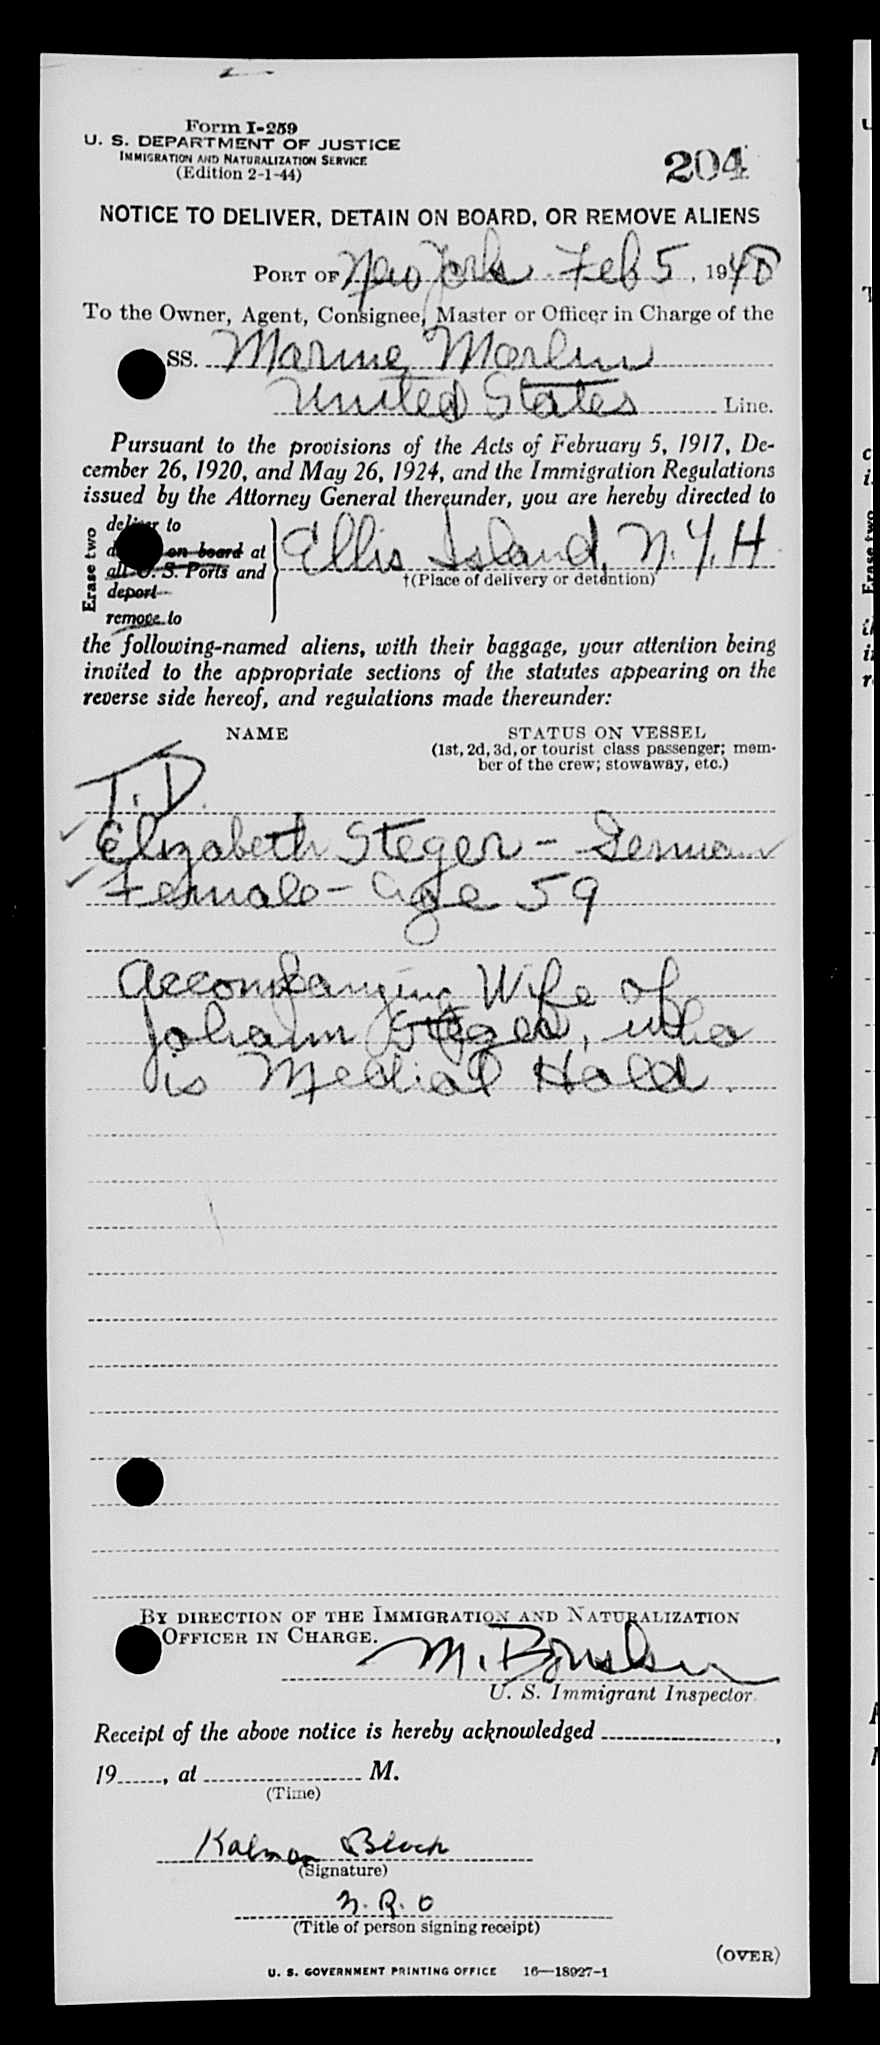 Form I-259
U. S. DEPARTMENT OF JUSTICE
IMMIGRATION AND NATURALIZATION SERVICE
(Edition 2-1-44)
204
NOTICE TO DELIVER, DETAIN ON BOARD, OR REMOVE ALIENS
PORT OF New York Feb 5, 1948
To the Owner, Agent, Consignee, Master or Officer in Charge of the
SS. Marine Marlin
United States Line.
Pursuant to the provisions of the Acts of February 5, 1917, De-
cember 26, 1920, and May 26, 1924, and the Immigration Regulations
issued by the Attorney General thereunder, you are hereby directed to
Erase two
deliver to
on board at
all U. S. Ports and
deport
remove to
Ellis Island, N.Y.H
†(Place of delivery or detention)
the following-named aliens, with their baggage, your attention being
invited to the appropriate sections of the statutes appearing on the
reverse side hereof, and regulations made thereunder:
NAME STATUS ON VESSEL
(1st, 2d, 3d, or tourist class passenger; mem-
ber of the crew; stowaway, etc.)
T.D.
Elizabeth Steger - German
Female - age 59
Accompanying Wife of
Johann Steger, who
is Medical Hold.
BY DIRECTION OF THE IMMIGRATION AND NATURALIZATION
OFFICER IN CHARGE.
M.
U. S. Immigrant Inspector.
Receipt of the above notice is hereby acknowledged ,
19 , at M.
(Time)
Kalman Block
(Signature)
N.R.O
(Title of person signing receipt)
(OVER)
U. S. GOVERNMENT PRINTING OFFICE 16—18927-1